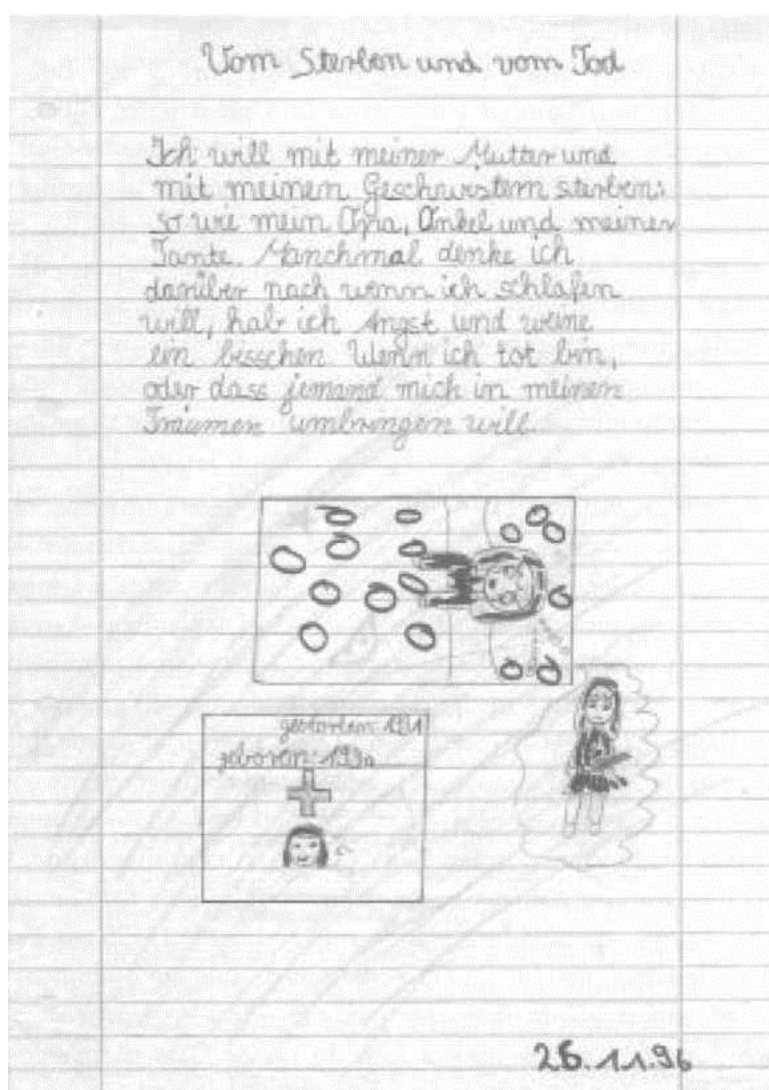 Vom Sterben und vom Tod
Ich will mit meiner Mutter und
mit meinen Geschwistern sterben:
so wie mein Opa, Onkel und meiner
Tante. Manchmal denke ich
darüber nach wenn ich schlafen
will, hab ich Angst und weine
ein bisschen Wenn ich tot bin,
oder dass jemand mich in meinen
Träumen umbringen will.
gestorben: 1991
geboren:
26.11.96